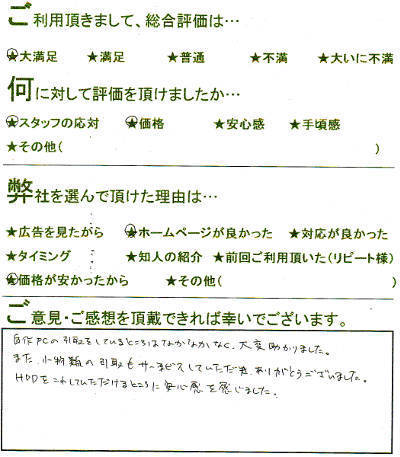 ご利用頂きまして、総合評価は…
★大満足 ★満足 ★普通 ★不満 ★大いに不満
何に対して評価を頂けましたか…
★スタッフの応対 ★価格 ★安心感 ★手頃感
★その他( )
弊社を選んで頂けた理由は…
★広告を見たから ★ホームページが良かった ★対応が良かった
★タイミング ★知人の紹介 ★前回ご利用頂いた(リピート様)
★価格が安かったから ★その他( )
ご意見・ご感想を頂戴できれば幸いでございます。
自作PCの引取をしているところはなかなかなく、大変助かりました。
また、小物類の引取もサービスしていただき、ありがとうございました。
HDDをこわしていただけるところに安心感を感じました。